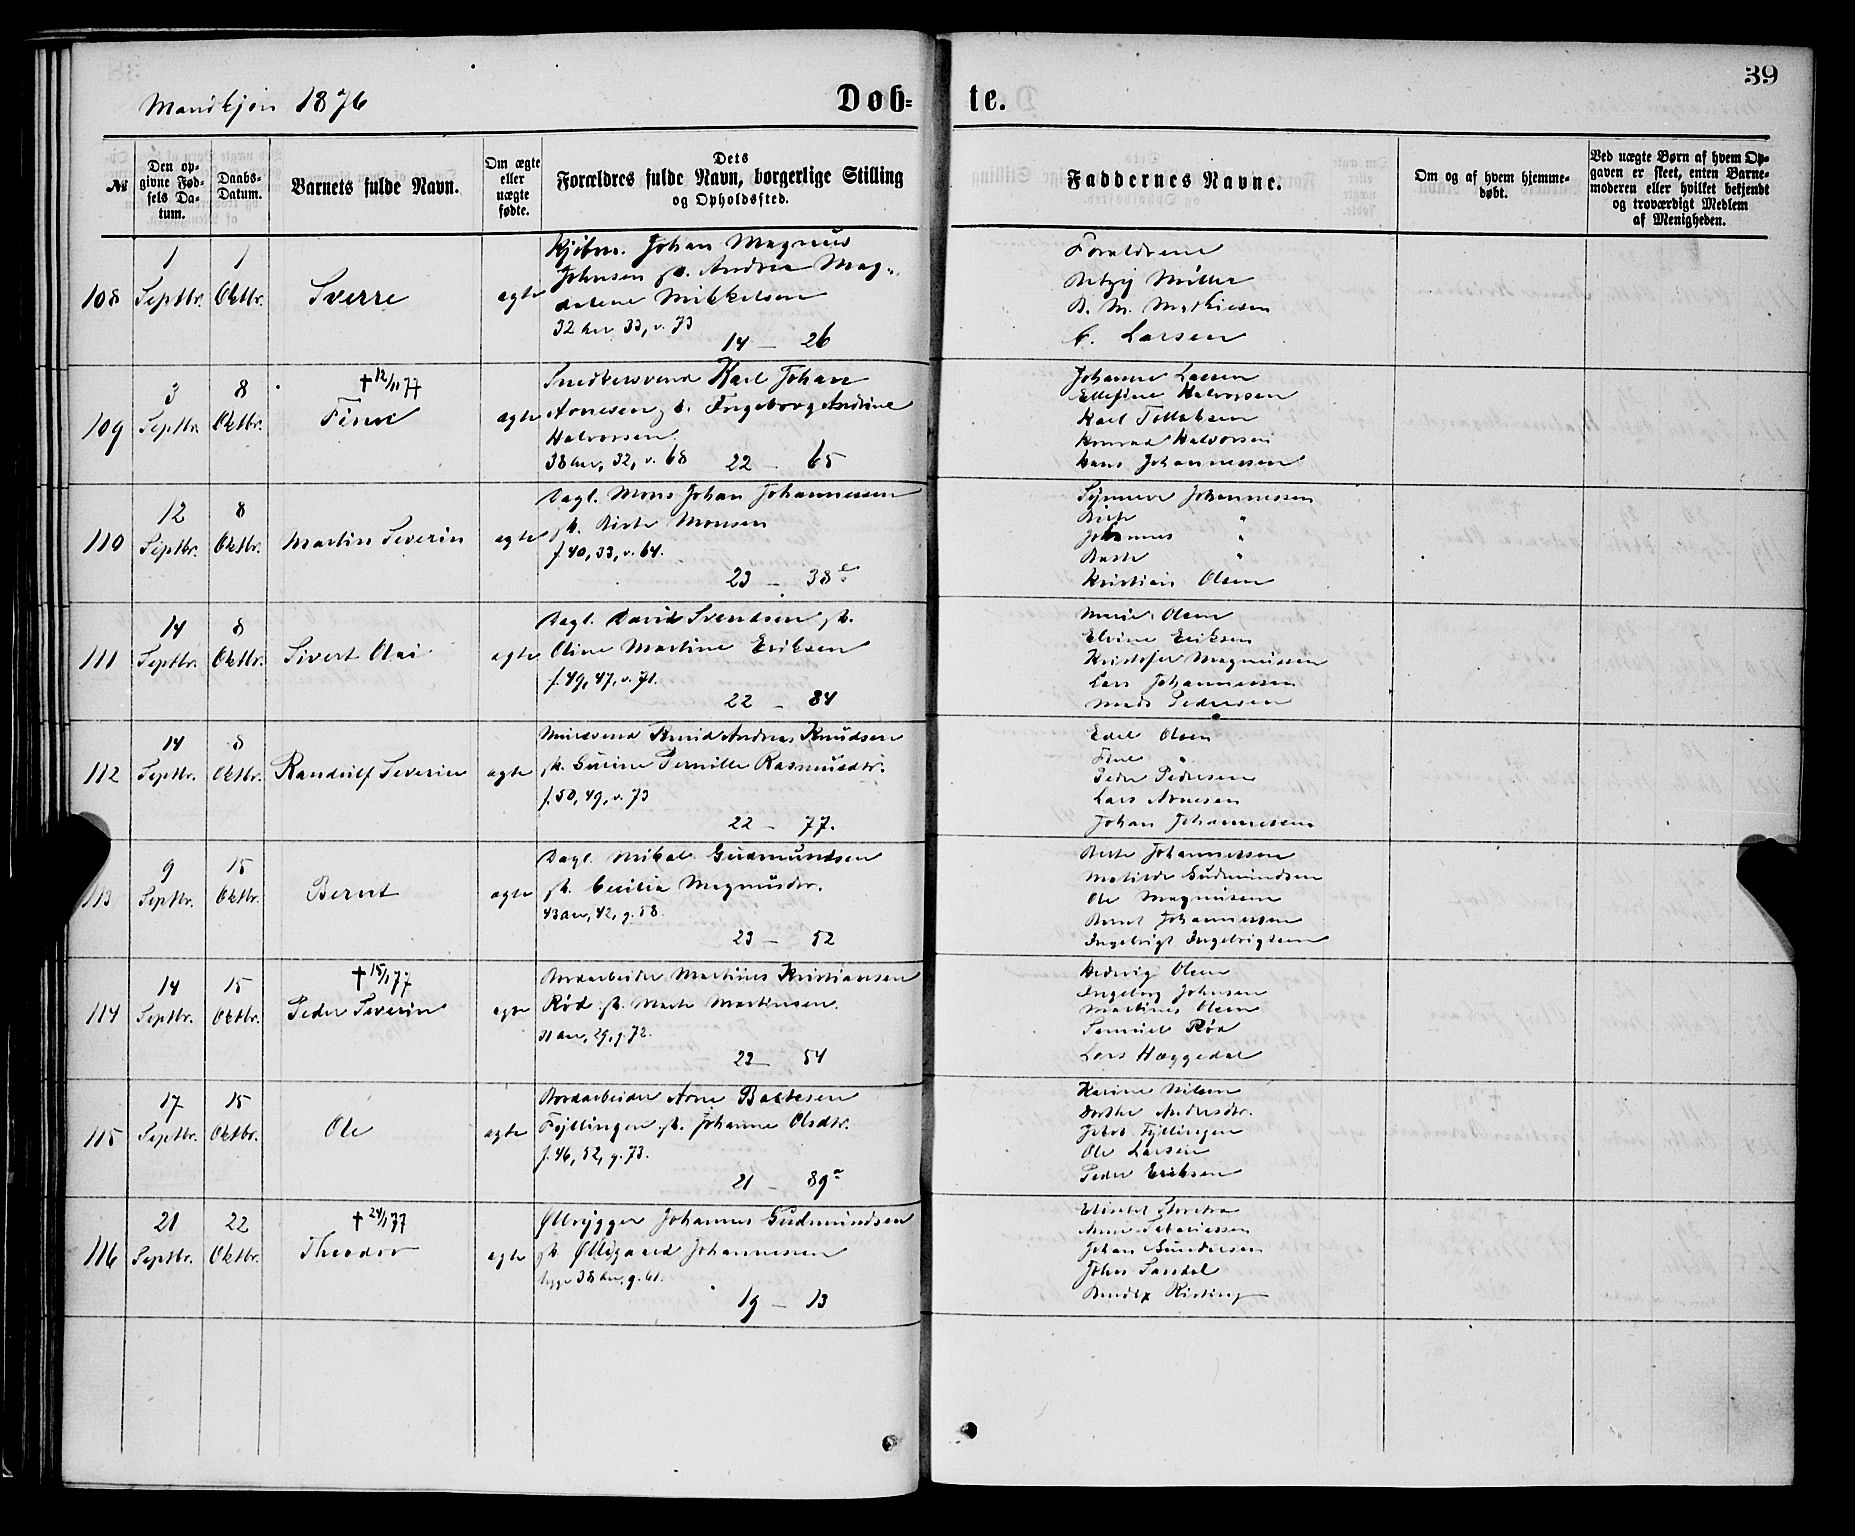 39
Mandkjøn 1876
Døb-
te.
№
Den op-
givne Fød-
sels Da-
tum.
Daabs-
Datum.
Barnets fulde Navn.
Om ægte
eller
uægte
fødte.
Dets
Forældres fulde Navn, borgerlige Stilling
og Opholdssted.
Faddernes Navne.
Om og af hvem hjemme-
døbt.
Ved uægte Børn af hvem Op-
gaven er skeet, enten Barne-
moderen eller hvilket bekjendt
og troværdigt Medlem
af Menigheden.
108
1
Septbr.
1
Oktbr.
Sverre
ægte
Kjøbm. Johan Magnus
Johnsen og h. Andrea Mag-
dalene Mikkelsen
32 her 33, v. 73
14 — 26
Forældrene
Betzy Müller
B. M. Mathiesen
C. Larsen
109
3
Septbr.
8
Oktbr.
† 12/11 77
Finn
ægte
Snedkersvend Karl Johan
Arnesen og h. Ingeborg Andrine
Halvorsen
38 her, 32, v. 68 22 — 65
Johanne Larsen
Ellefine Halvorsen
Karl Tollaksen
Konrad Halvorsen
Hans Johannessen
110
12
Septbr.
8
Oktbr.
Martin Severin
ægte
Dagl. Mons Johan Johannessen
og h. Birte Monsen
f. 40, 33, v. 64.
23 — 38 c
Synneve Johannessen
Birte "
Johannes "
Berte "
Kristian Olsen
111
14
Septbr.
8
Oktbr.
Sivert Olai
ægte
Dagl. David Svendsen og h.
Oline Martine Eriksen
f. 49, 47, v. 71.
22 — 84
Marie Olsen
Elvine Eriksen
Kristofer Magnussen
Lars Johannessen
Mads Pedersen
112
14
Septbr.
8
Oktbr.
Randulf Severin
ægte
Mursvend Knud Andreas Knudsen
og h. Gurine Pernille Rasmusdtr.
f. 50, 49, v. 73
22 — 77.
Edel Olsen
Fine "
Peder Pedersen
Lars Arnesen
Johan Johannessen
113
9
Septbr.
15
Oktbr.
Bernt
ægte
Dagl. Mikal Gudmundsen
og h. Cecilia Magnusdtr.
43 her, 42, g. 58.
23 — 52
Berte Johannessen
Matilde Gudmundsen
Ole Magnusen
Bernt Johannessen
Ingebrigt Ingebrigtsen
114
14
Septbr.
15
Oktbr.
† 15/1 77
Peder Severin
ægte
Bordarbeider Martinus Kristiansen
Rød og h. Marte Martinsen
31 her, 29, g. 72.
22 — 54
Hedevig Olsen
Ingeborg Johnsen
Martinus Olsen
Samuel Rød
Lars Hæggedal
115
17
Septbr.
15
Oktbr.
Ole
ægte
Bordarbeider Arne Baltesen
Fjyllingen og h. Johanne Olsdtr.
f. 46, 52, g. 73.
21 — 89 a
Karine Nilsen
Dorthe Andersdtr.
Jakob Fyllingen
Ole Larsen
Peder Eriksen
116
21
Septbr.
22
Oktbr.
† 24/1 77
Theodor
ægte
Ølbrygger Johannes Gudmundsen
og h. Øllegaard Johannessen
begge 38 her, g. 61.
19 — 13
Elisabet
Johan Gundersen
Johan Sandal